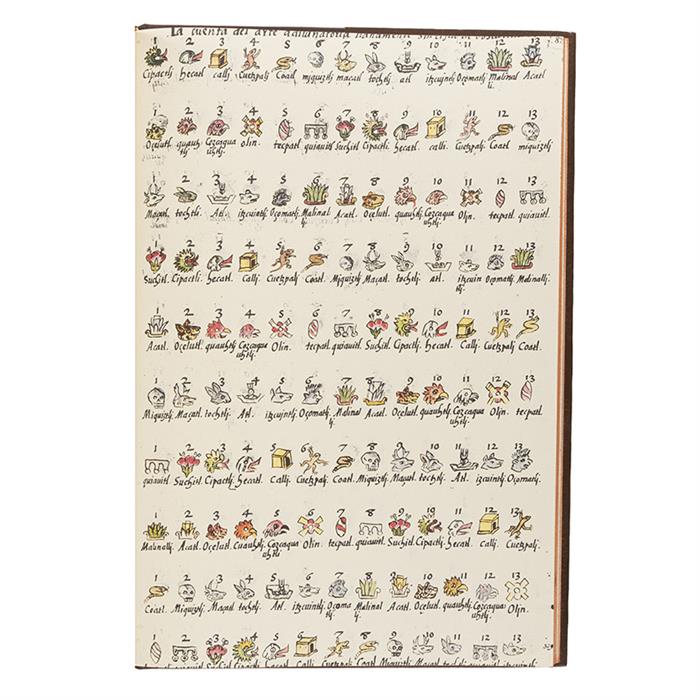 La cuenta del arte
1 2 3 4 5 6 7 8 9 10 11 12 13
Cipactlj hecatl callj Cuetzpalj Coatl miquiztlj maçatl tochtlj atl itzcuintlj Oçomatlj Malinallj Acatl
1 2 3 4 5 6 7 8 9 10 11 12 13
Ocelutl. quauhtlj Cozcaquauhtlj olin. tecpatl. quiauitl Suchitl Cipactlj. hecatl. callj. Cuetzpalj Coatl miquiztlj
1 2 3 4 5 6 7 8 9 10 11 12 13
Maçatl tochtlj. Atl. itzcuintlj. Oçomatlj. Malinal Acatl. Ocelutl. quauhtlj. Cozcaquauhtlj. Olin. tecpatl. quiauitl.
1 2 3 4 5 6 7 8 9 10 11 12 13
Suchitl Cipactlj. hecatl. Callj. Cuetzpalj Coatl. Miquiztlj Maçatl. tochtlj. atl. itzcuintlj. Oçomatlj. Malinallj.
1 2 3 4 5 6 7 8 9 10 11 12 13
Acatl. Ocelutl. quauhtlj Cozcaquauhtlj. Olin. tecpatl. quiauitl. Suchitl Cipactlj. hecatl. Callj. Cuetzpalj Coatl.
1 2 3 4 5 6 7 8 9 10 11 12 13
Miquiztlj. Maçatl. tochtlj. Atl. itzcuintlj. Oçomatlj. Malinal Acatl. Ocelutl. quauhtlj. Cozcaquauhtlj. Olin. tecpatl.
1 2 3 4 5 6 7 8 9 10 11 12 13
quiauitl. Suchitl. Cipactlj. hecatl. Callj. Cuetzpalj Coatl. Miquiztlj. Maçatl. tochtlj. Atl. itzcuintlj. Oçomatlj.
1 2 3 4 5 6 7 8 9 10 11 12 13
Malinallj. Acatl. Ocelutl. Quauhtlj. Cozcaquauhtlj Olin. tecpatl. quiauitl. Suchitl. Cipactlj. hecatl. Callj. Cuetzpalj.
1 2 3 4 5 6 7 8 9 10 11 12 13
Coatl. Miquiztlj. Maçatl tochtlj. Atl. itzcuintlj. Oçomatlj. Malinal Acatl. Ocelutl. quauhtlj. Cozcaquauhtlj. Olin.
1 2 3 4 5 6 7 8 9 10 11 12 13
tecpatl. quiauitl. Suchitl. Cipactlj. hecatl. Callj Cuetzpalj Coatl. Miquiztlj Maçatl. tochtlj